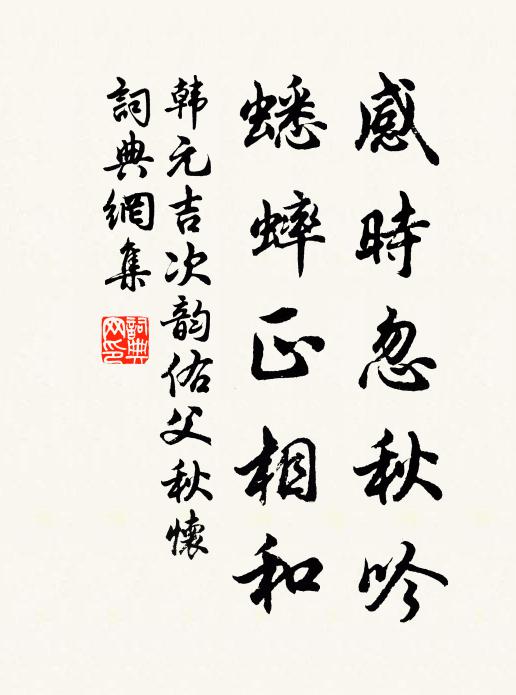 感時忽秋吟
蟋蟀正相和
韩元吉次韵佑父秋懷
詞典網集
詞典
网印